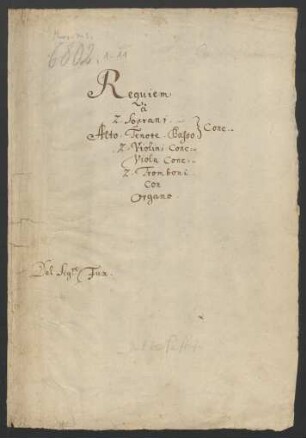 6802.
Requiem
à
2. Soprani
Alto Tenore Basso } Conc..
2. Violini Conc..
Viola Conc..
2. Tromboni
Con
Organo
Del Sigre Fux.